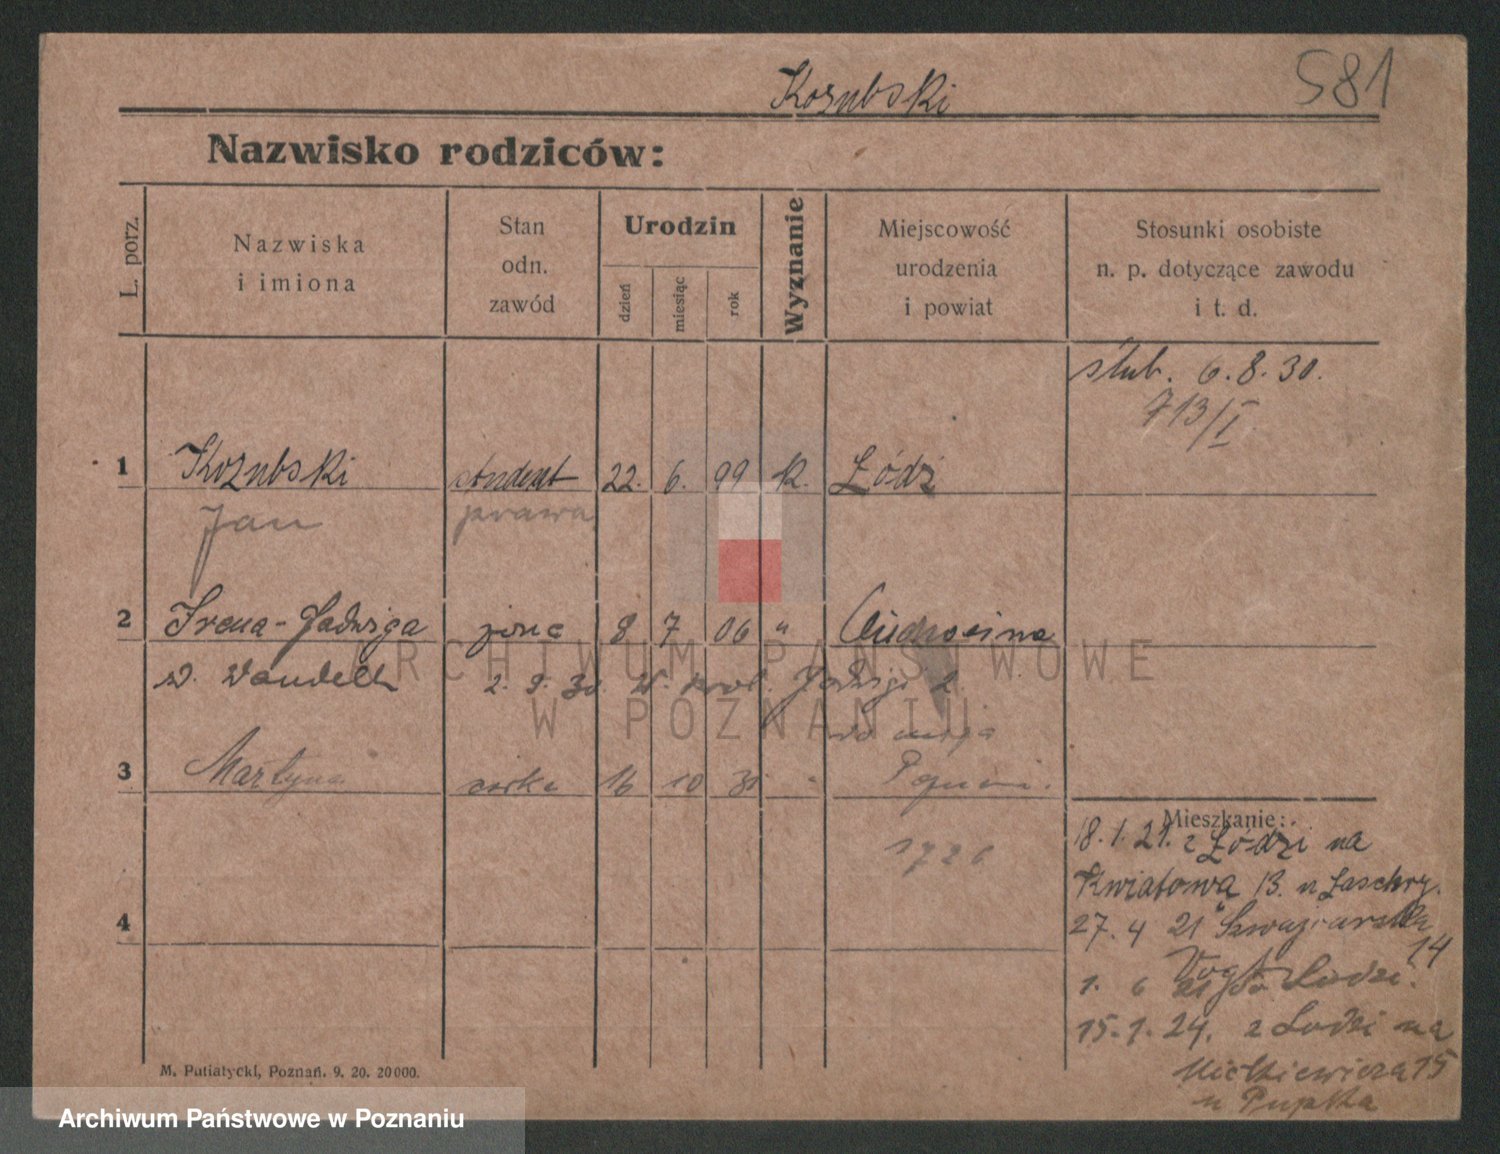 Kozubski
581
Nazwisko rodziców:
L. porz.
Nazwiska
i imiona
Stan
odn.
zawód
Urodzin
dzień
miesiąc
rok
Wyznanie
Miejscowość
urodzenia
i powiat
Stosunki osobiste
n. p. dotyczące zawodu
i t. d.
ślub. 6.8.30.
713/I
1 Kozubski student 22. 6. 99 k. Łódź
Jan prawa
2 Irena-Jadwiga żona 8 7 06 "
2. 9. 30 Jadwigi 2
3 Martyna córka 16 10 31 "
1726
Mieszkanie:
18.1.21. z Łódzi na
Kwiatową 13. u
4
27.4 21 Szwajcarska
14
1. 6 21 do Łodzi.
15.1.24. z Łodzi na
Mickiewicza 15
u Pupka
M. Putiatycki, Poznań. 9. 20. 20000.
ARCHIWUM PAŃSTWOWE
W POZNANIU
Archiwum Państwowe w Poznaniu